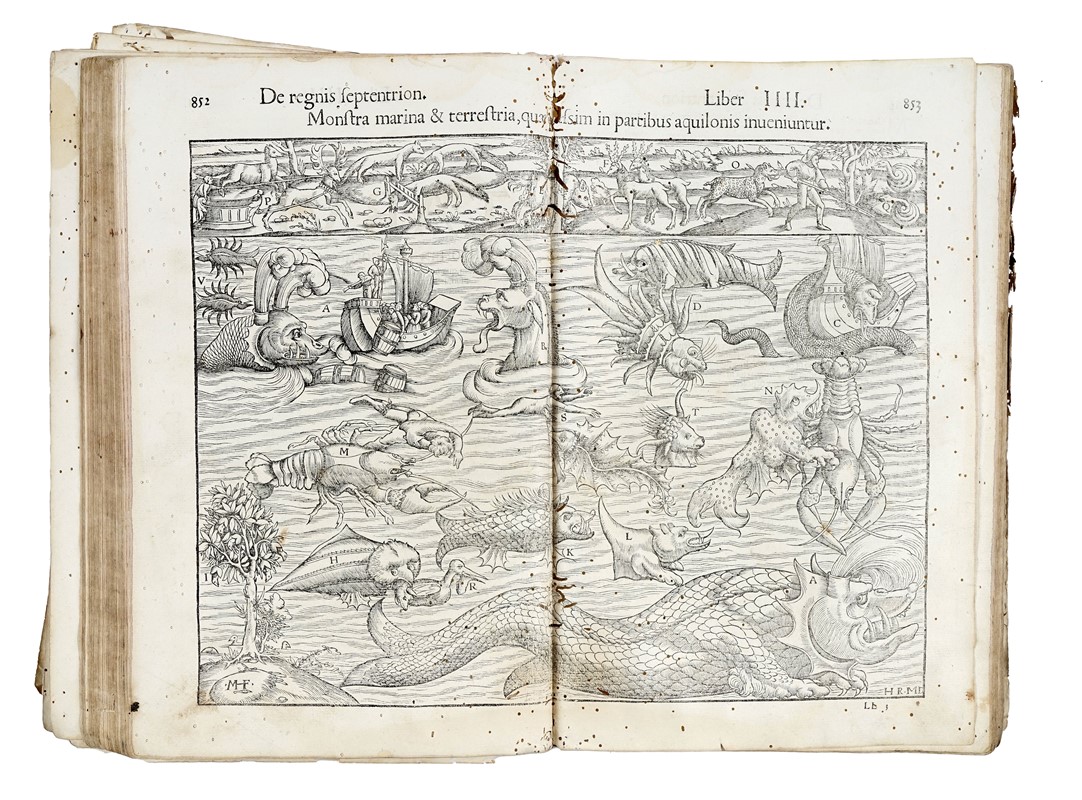 852 De regnis septentrion. Liber IIII. 853
Monstra marina & terrestria, in partibus aquilonis inueniuntur.
F O
P G
V
A D C
B
N
S T
M
L
H K
I R
A
MHF
HRMD
Lb 3